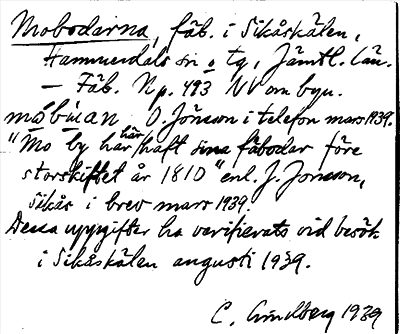 Mobodarna, fäb. i Sikåskälen,
Hammerdals sn o tg, Jämtl. län.
— Fäb. Np. 493 NV om byn.
måbúan O. Jönsson i telefon mars 1939.
"Mo by har här/haft sina fäbodar före
storskiftet år 1810" enl. J. Jonsson,
Sikås i brev mars 1939.
Dessa uppgifter ha verifierats vid besök
i Sikåskälen augusti 1939.
C. Lindberg 1939